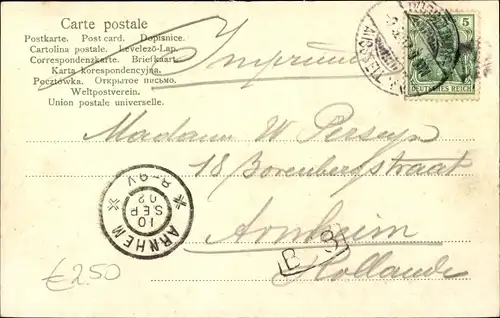 Carte postale
Postkarte. Post card. Dopisnice.
Cartolina postale. Levelező-Lap.
Correspondenzkarte. Briefkaart.
Karta korespondencyjna.
Pocztówka. Открытое письмо.
Weltpostverein.
Union postale universelle.
Imprimé
5
DEUTSCHES REICH
Madame W Perseyn
18/Borenbergstraat
Arnheim
Hollande
B 3
ARNHEM
10
SEP
02
8-9V
€2.50